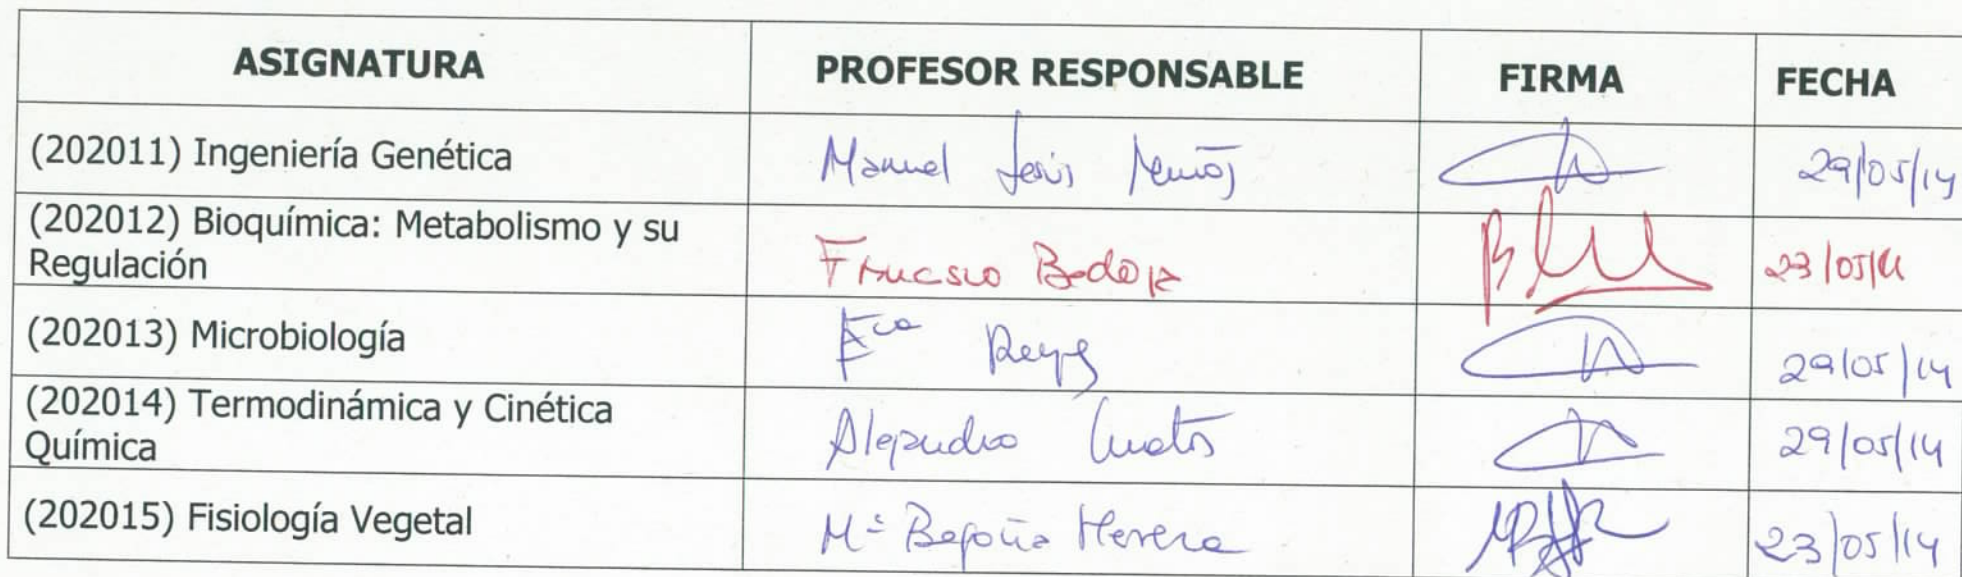 ASIGNATURA PROFESOR RESPONSABLE FIRMA FECHA
(202011) Ingeniería Genética Manuel Jesús Muñoz 29/05/14
(202012) Bioquímica: Metabolismo y su
Regulación 23/05/14
(202013) Microbiología Fco Reyes 29/05/14
(202014) Termodinámica y Cinética
Química Alejandro 29/05/14
(202015) Fisiología Vegetal Mª Begoña Herrera 23/05/14